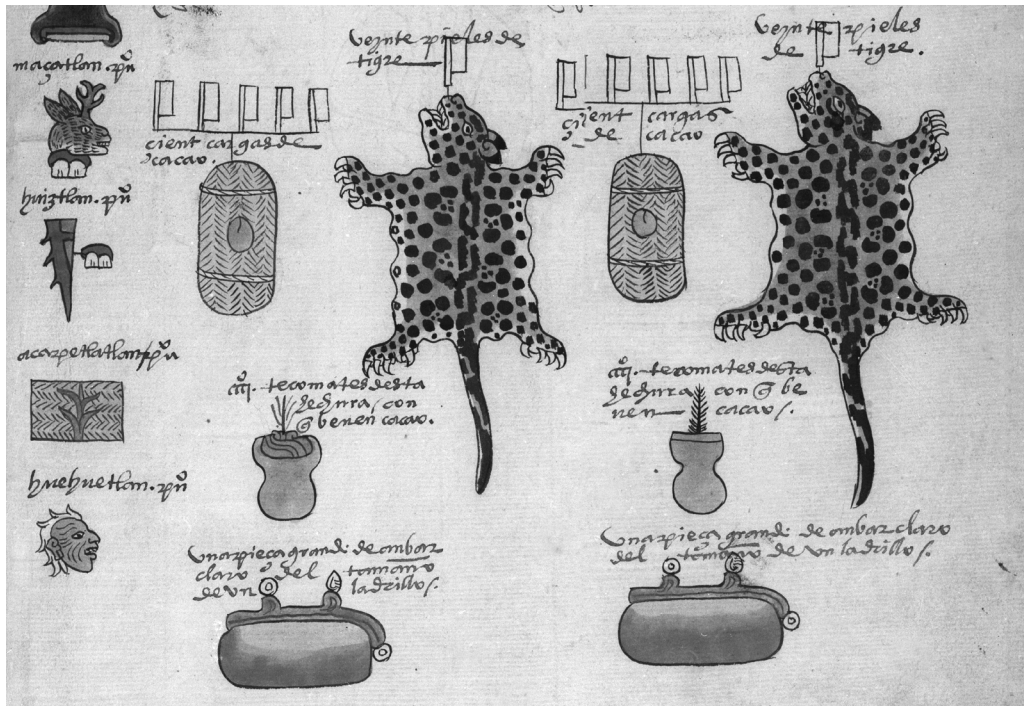 maçatlan. pu͞o
huiztlan. pu͞o
acapetlatlan / pu͞o
huehuetlan. pu͞o
cient cargas de
cacao.
veynte pieles de
tigre
cient cargas
de cacao
veynte pieles
de tigre.
iiiiº. tecomates desta
hechura, con
q̃ beven cacao.
iiiiº. tecomates desta
hechura con q̃ be
ven cacao /.
una pieça grande de ambar
claro del tamaño
de un ladrillo /.
una pieça grande de ambar claro
del tamaño de un ladrillo /.